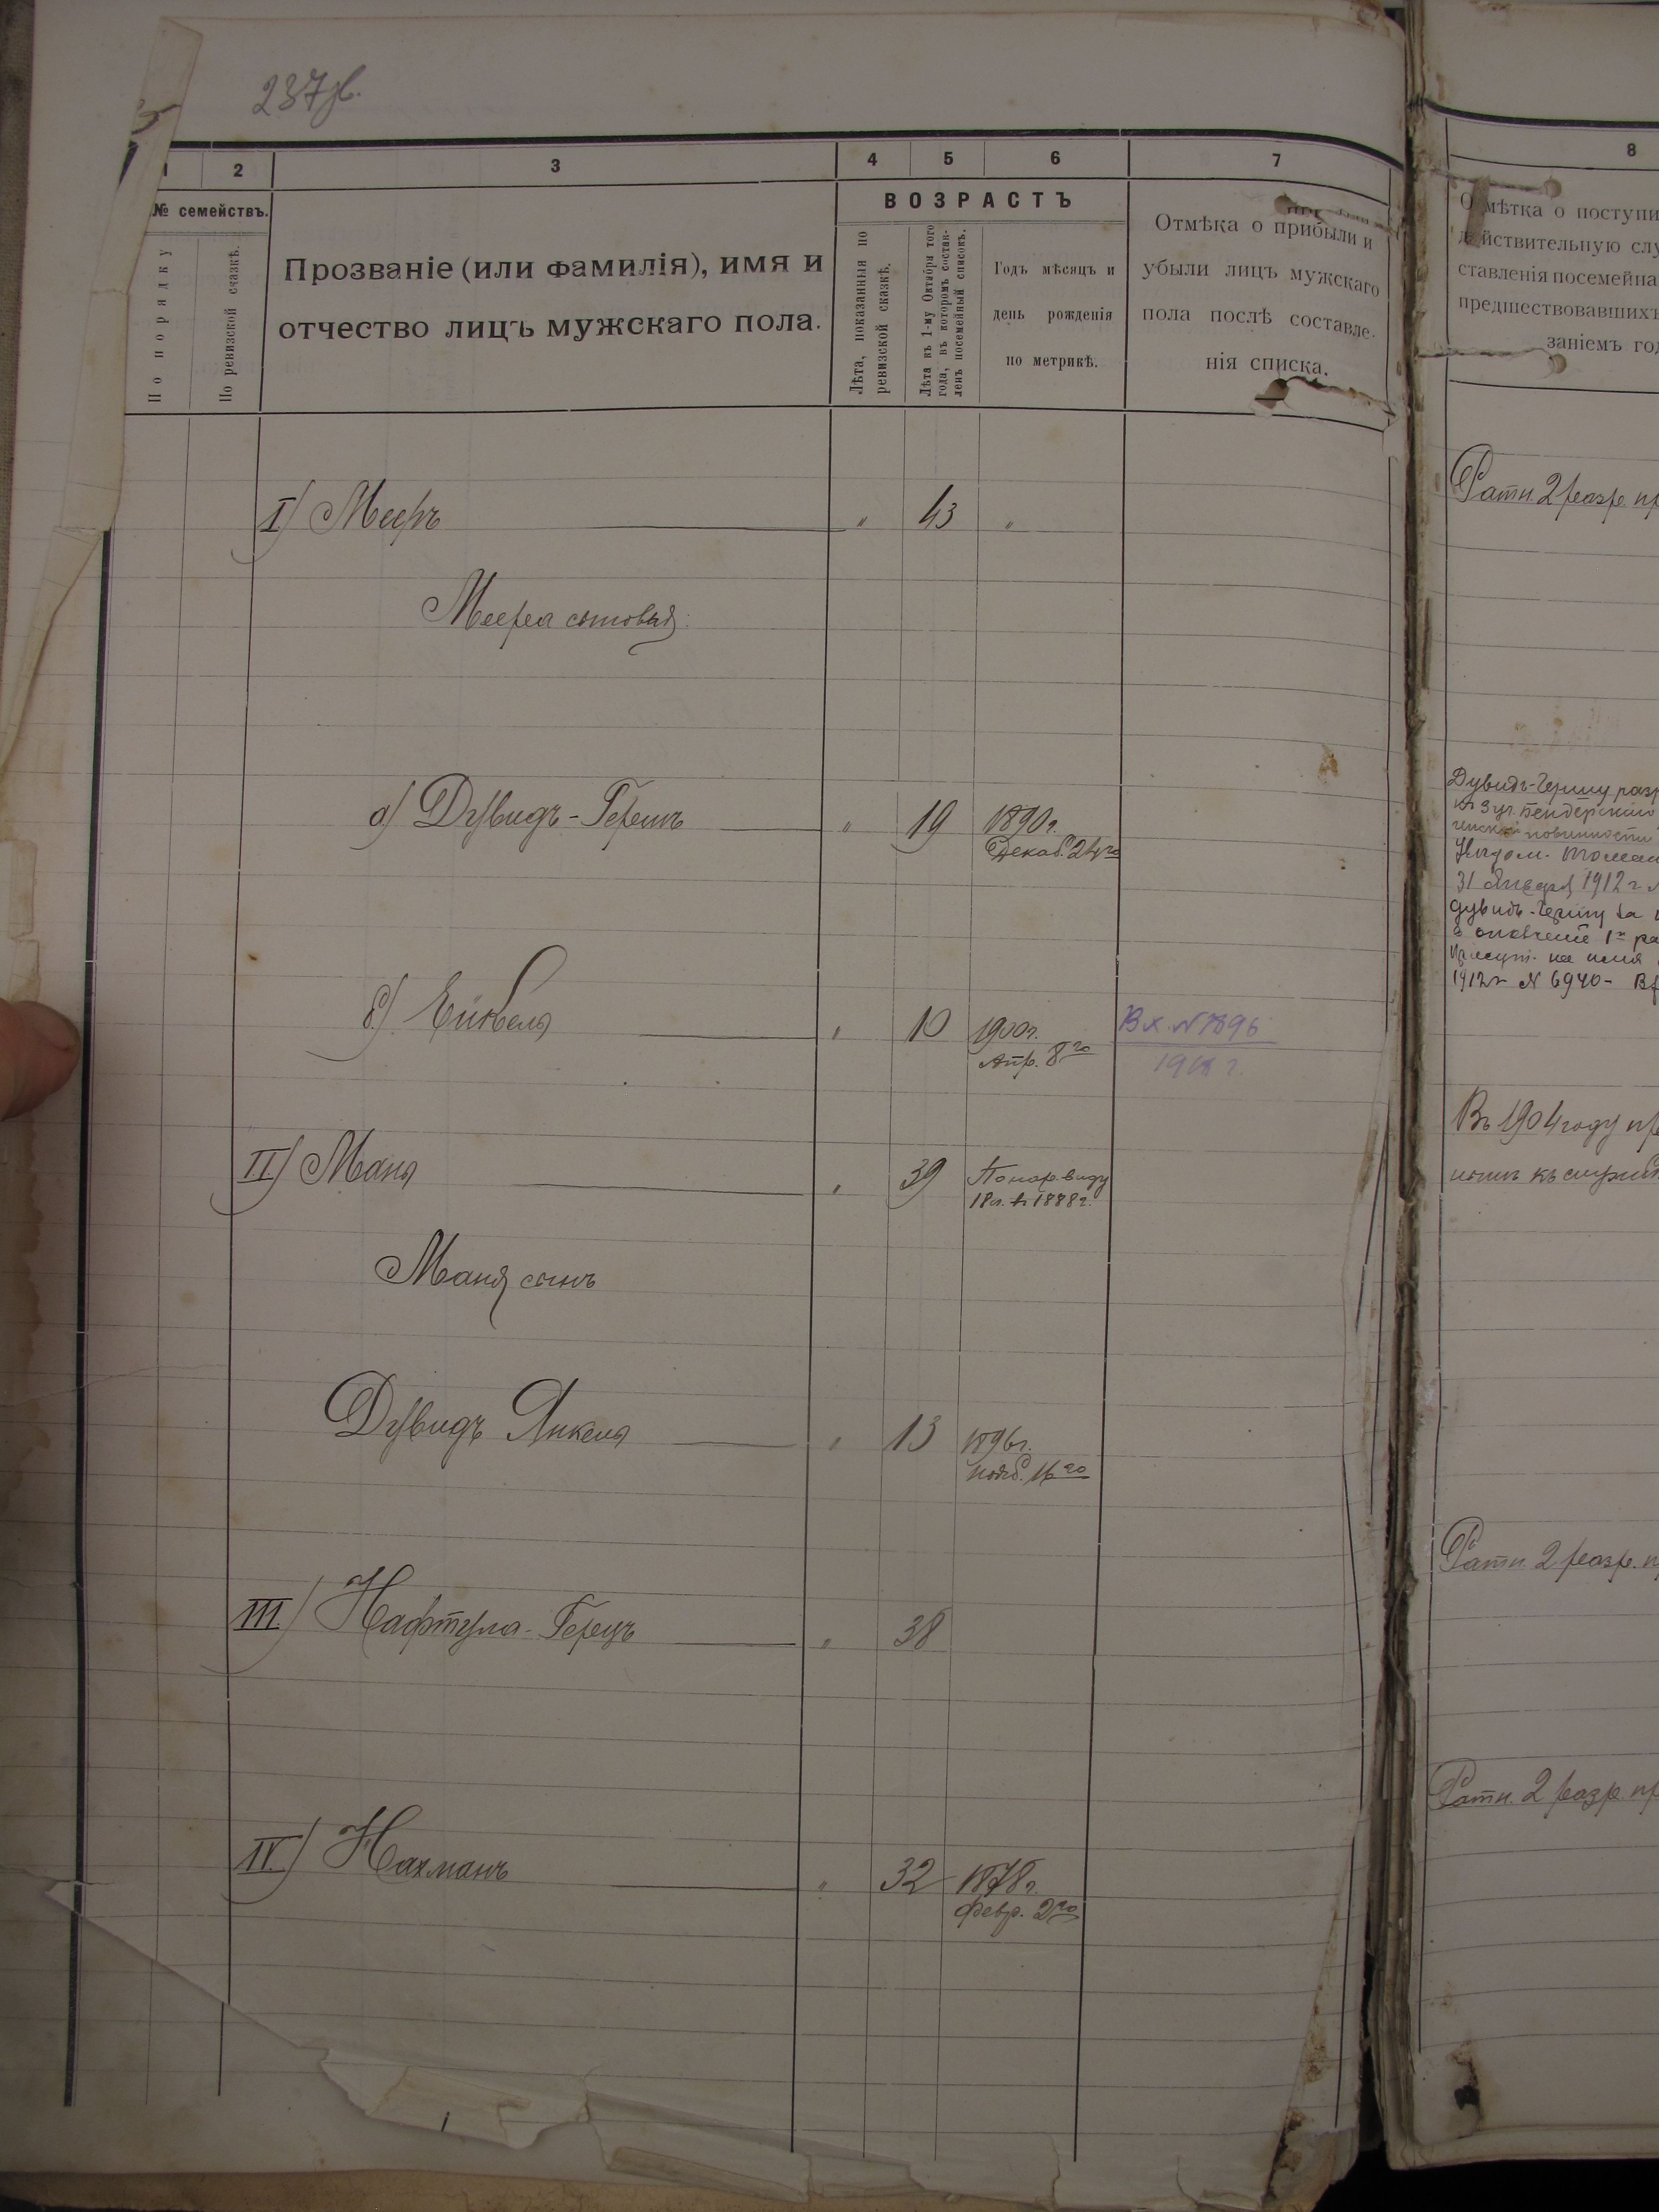 1 2 3 4 5 6 7
№ семействъ.
По порядку
По ревизской сказкѣ.
Прозваніе (или фамилія), имя и
отчество лицъ мужскаго пола.
ВОЗРАСТЪ
Лѣта, показанныя по
ревизской сказкѣ.
Лѣта къ 1-му Октября того
года, въ которомъ состав-
ленъ посемейный списокъ.
Годъ мѣсяцъ и
день рожденія
по метрикѣ.
Отмѣка о прибыли и
убыли лицъ мужскаго
пола послѣ составле-
нія списка.
I) Мееръ " 43 "
Меера сыновья:
а) Дувидъ-Гершъ " 19 1890 г.
Декаб. 24го
б) " 10 1900 г.
Апр. 8го
Вх. №
II) Маня " 39 По нар. виду
18 л. в 1888 г.
Маня сынъ
Дувидъ Янкель " 13 1896 г.
нояб. 16го
III) Нафтула-Герцъ " 38
IV) Нахманъ " 32 1878 г.
Февр. 2го
8
Отмѣтка о поступи
дѣйствительную слу
ставленія посемейна
предшествовавшихъ
заніемъ год
Ратн. 2 разр. пр
Дувидъ-Гершу разр
31 Января 1912 г
Дувидъ-Гершу
1912 г № 6940-
Въ 1904 году пр
Ратн. 2 разр. п
Ратн. 2 разр. пр